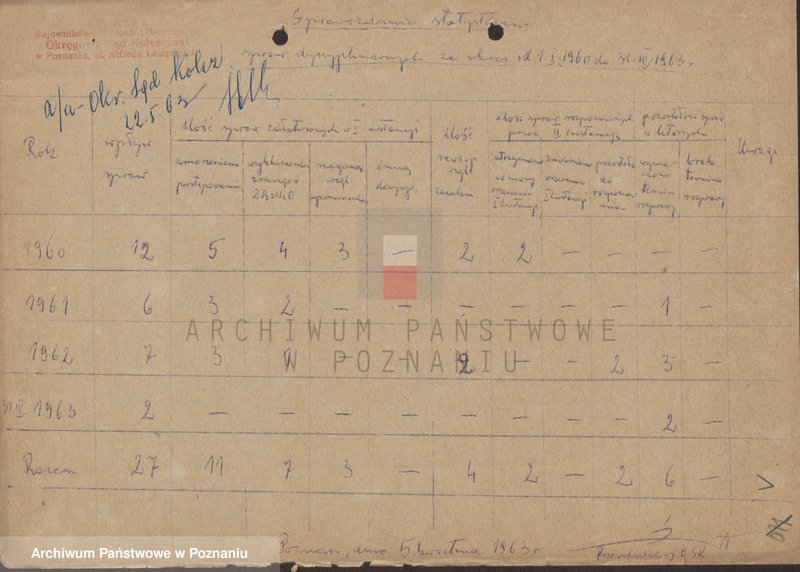 Sprawozdanie statystyczne
spraw dyscyplinarnych za okres od 1.I.1960 do 31.III.1963 r.
Okręgowy Sąd Koleżeński
w Poznaniu, ul. Alfreda Lampego
a/a - Okr. Sąd Kolez.
22.5.63
Rok
wpłynęło spraw
Ilość spraw załatwionych w I instancji
umorzenie postępowania
wykluczenie z szeregów ZBoWiD
nagana wzgl. upomnienie
inną decyzją
Ilość
ilość spraw rozpoznanych przez II instancję
utrzymano w mocy orzeczenie I instancji
zmieniono orzeczenie I instancji
pozostało spraw w których
wyznaczono termin rozprawy
brak terminu rozprawy
Uwagi
1960 12 5 4 3 — 2 2 — — — —
1961 6 3 2 — — — — — — 1 —
1962 7 3 1 — — 2 — — 2 3 —
31.III 1963 2 — — — — — — — — 2 —
Razem 27 11 7 3 — 4 2 — 2 6 —
ARCHIWUM PAŃSTWOWE
W POZNANIU
Poznań, dnia 5 kwietnia 1963 r.
Przewodniczący OSK
Archiwum Państwowe w Poznaniu